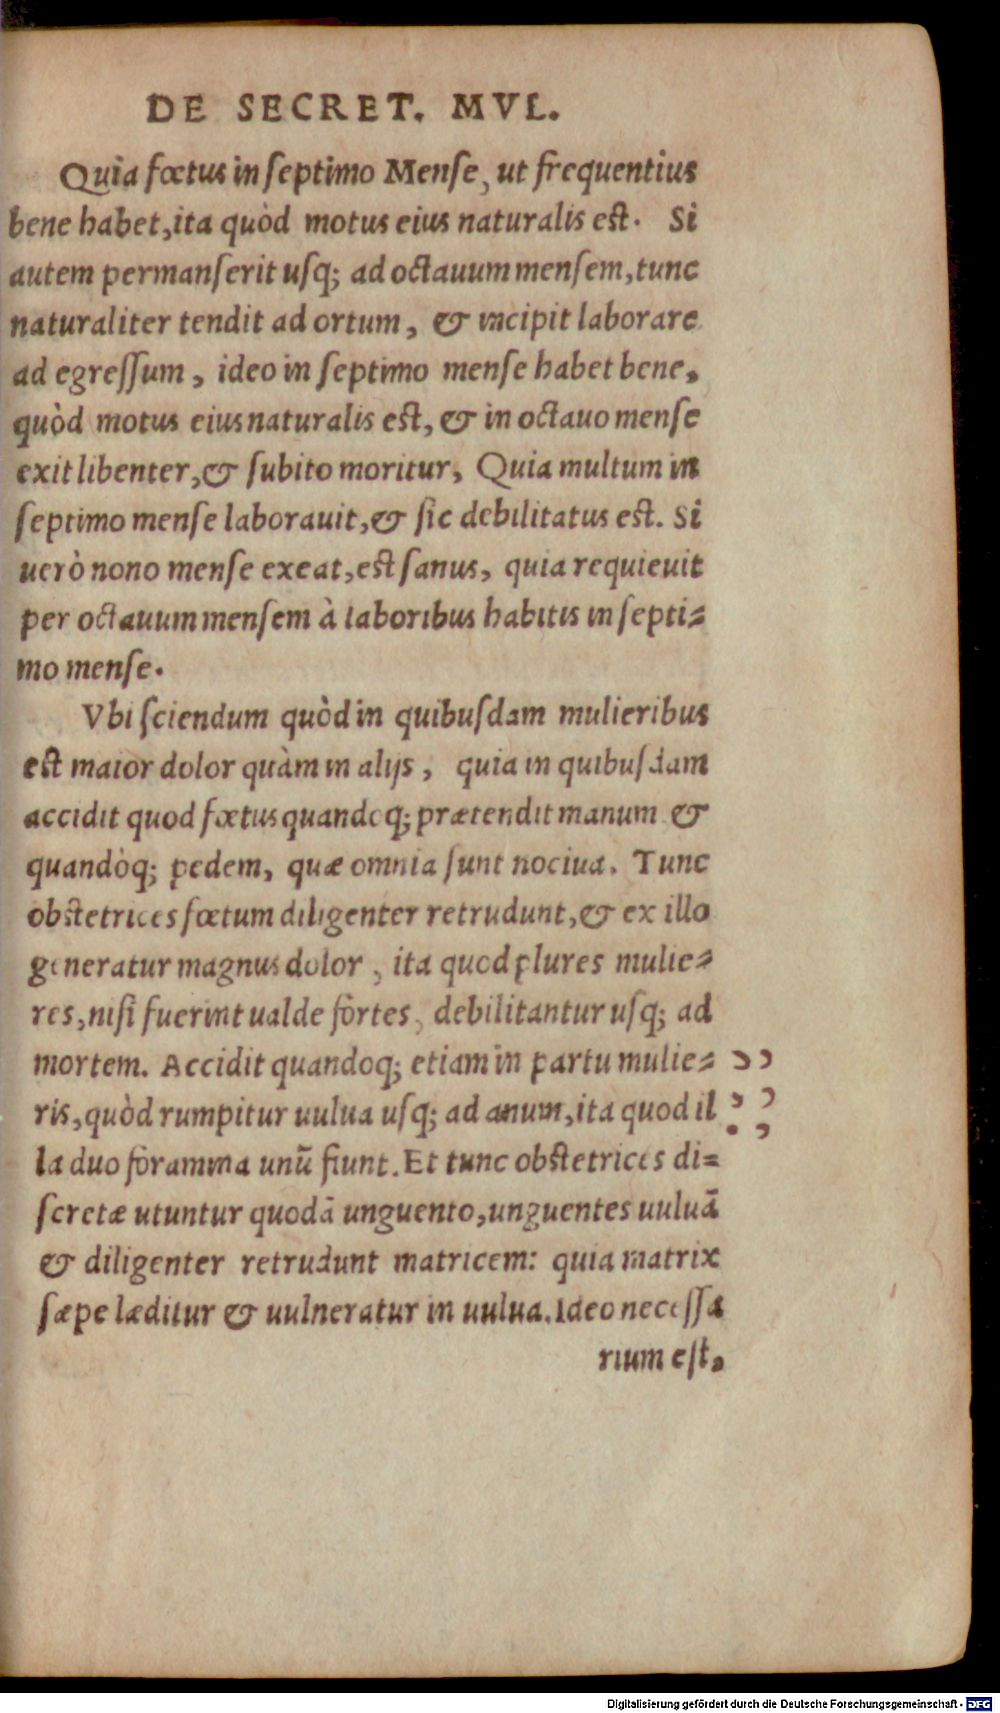 DE SECRET. MVL.
Quia fœtus in septimo Mense, ut frequentius
bene habet, ita quòd motus eius naturalis est. Si
autem permanserit usq; ad octauum mensem, tunc
naturaliter tendit ad ortum, & incipit laborare
ad egressum, ideo in septimo mense habet bene,
quòd motus eius naturalis est, & in octauo mense
exit libenter, & subito moritur, Quia multum in
septimo mense laborauit, & sic debilitatus est. Si
uerò nono mense exeat, est sanus, quia requieuit
per octauum mensem à laboribus habitis in septi-
mo mense.
Vbi sciendum quòd in quibusdam mulieribus
est maior dolor quàm in alijs, quia in quibusdam
accidit quod fœtus quandoq; prætendit manum &
quandòq; pedem, quæ omnia sunt nociua. Tunc
obstetrices fœtum diligenter retrudunt, & ex illo
generatur magnus dolor, ita quod plures mulie-
res, nisi fuerint ualde fortes, debilitantur usq; ad
mortem. Accidit quandoq; etiam in partu mulie-
ris, quòd rumpitur uulua usq; ad anum, ita quod il
la duo foramina unũ fiunt. Et tunc obstetrices di-
scretæ utuntur quodã unguento, unguentes uuluã
& diligenter retrudunt matricem: quia matrix
sæpe læditur & uulneratur in uulua. Ideo necessa
rium est,
Digitalisierung gefördert durch die Deutsche Forschungsgemeinschaft - DFG